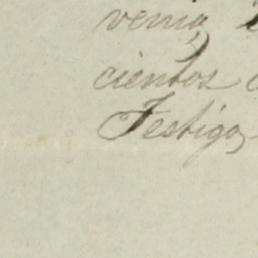 venia
cientos
Testigo,